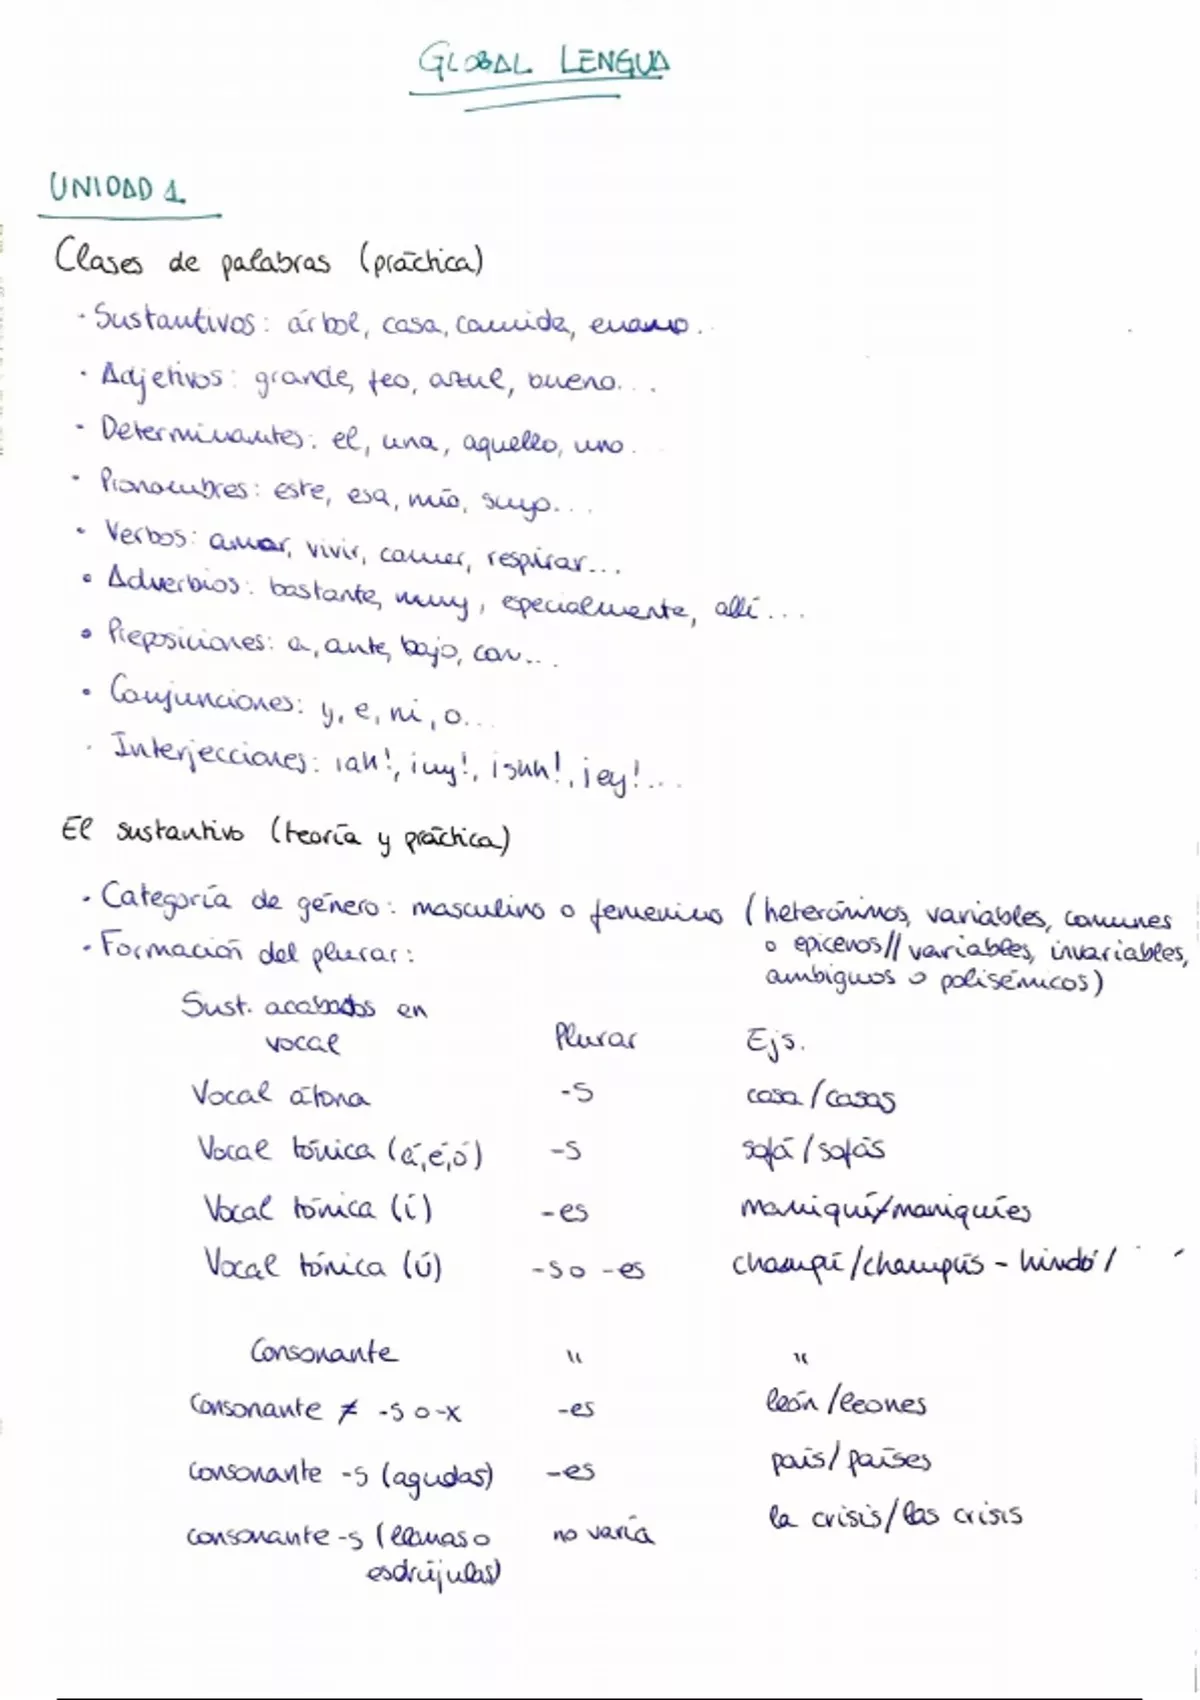 GLOBAL LENGUA
UNIDAD 1
Clases de palabras (práctica)
· Sustantivos: árbol, casa, comida, enano..
· Adjetivos: grande, feo, azul, bueno...
· Determinantes: el, una, aquello, uno...
· Pronombres: este, esa, mío, suyo...
· Verbos: amar, vivir, comer, respirar...
· Adverbios: bastante, muy, especialmente, allí...
· Preposiciones: a, ante, bajo, con...
· Conjunciones: y, e, ni, o...
· Interjecciones: ¡ah!, ¡uy!, ¡shh!, ¡ey!...
El sustantivo (teoría y práctica)
· Categoría de género: masculino o femenino (heterónimos, variables, comunes
o epicenos // variables, invariables,
ambiguos o polisémicos)
· Formación del plurar:
Sust. acabados en vocal Plurar Ejs.
Vocal átona -s casa / casas
Vocal tónica (á, é, ó) -s sofá / sofás
Vocal tónica (í) -es maniquí / maniquíes
Vocal tónica (ú) -s o -es champú / champús - hindú /
Consonante " "
Consonante ≠ -s o -x -es león / leones
Consonante -s (agudas) -es país / países
consonante -s (llanas o esdrújulas) no varía la crisis / las crisis